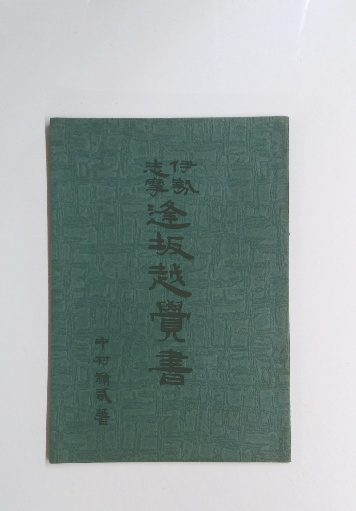 伊勢
志摩
逢坂越覺書
中村精貳著